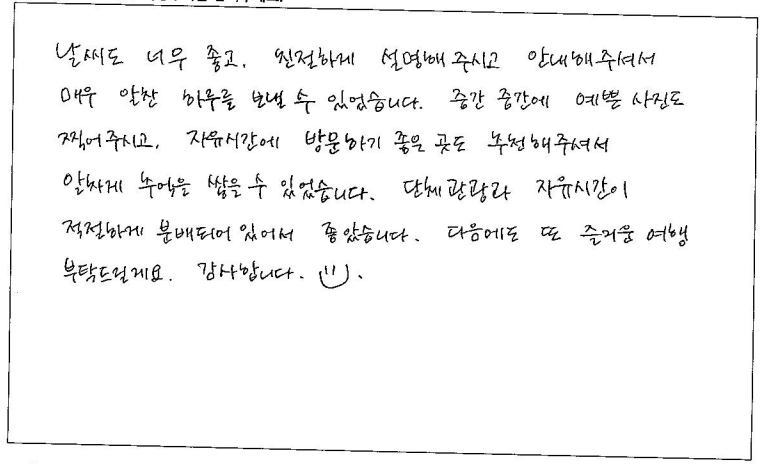 날씨도 너무 좋고, 친절하게 설명해주시고 안내해주셔서
매우 알찬 하루를 보낼 수 있었습니다. 중간 중간에 예쁜 사진도
찍어주시고, 자유시간에 방문하기 좋은 곳도 추천해주셔서
알차게 추억을 쌓을 수 있었습니다. 단체관광과 자유시간이
적절하게 분배되어 있어서 좋았습니다. 다음에도 또 즐거운 여행
부탁드릴게요. 감사합니다.